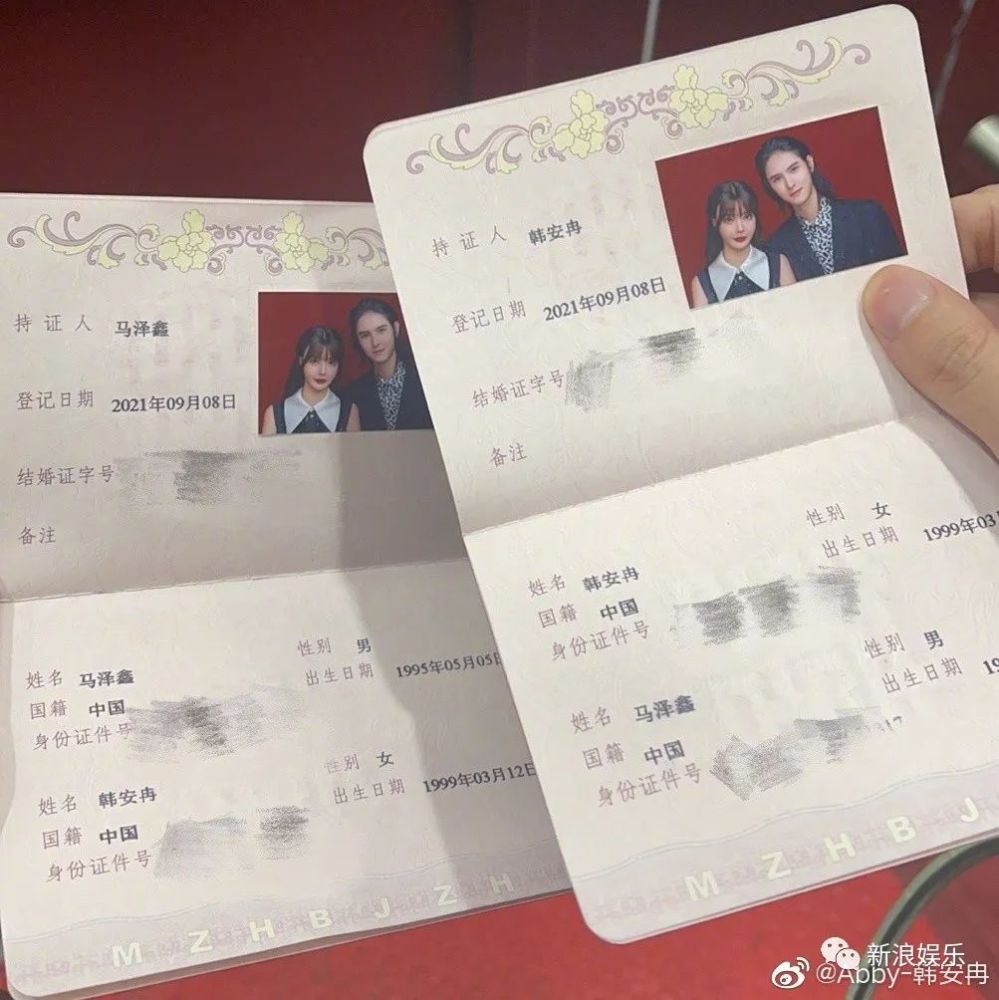 持证人 马泽鑫
登记日期 2021年09月08日
结婚证字号
备注
性别 男
姓名 马泽鑫
出生日期 1995年05月05日
国籍 中国
身份证件号
性别 女
姓名 韩安冉
出生日期 1999年03月12日
国籍 中国
身份证件号
M Z H B J Z H
持证人 韩安冉
登记日期 2021年09月08日
结婚证字号
备注
性别 女
姓名 韩安冉
出生日期 1999年03
国籍 中国
身份证件号
性别 男
姓名 马泽鑫
出生日期 19
国籍 中国
身份证件号
M Z H B J
新浪娱乐
@Abby-韩安冉